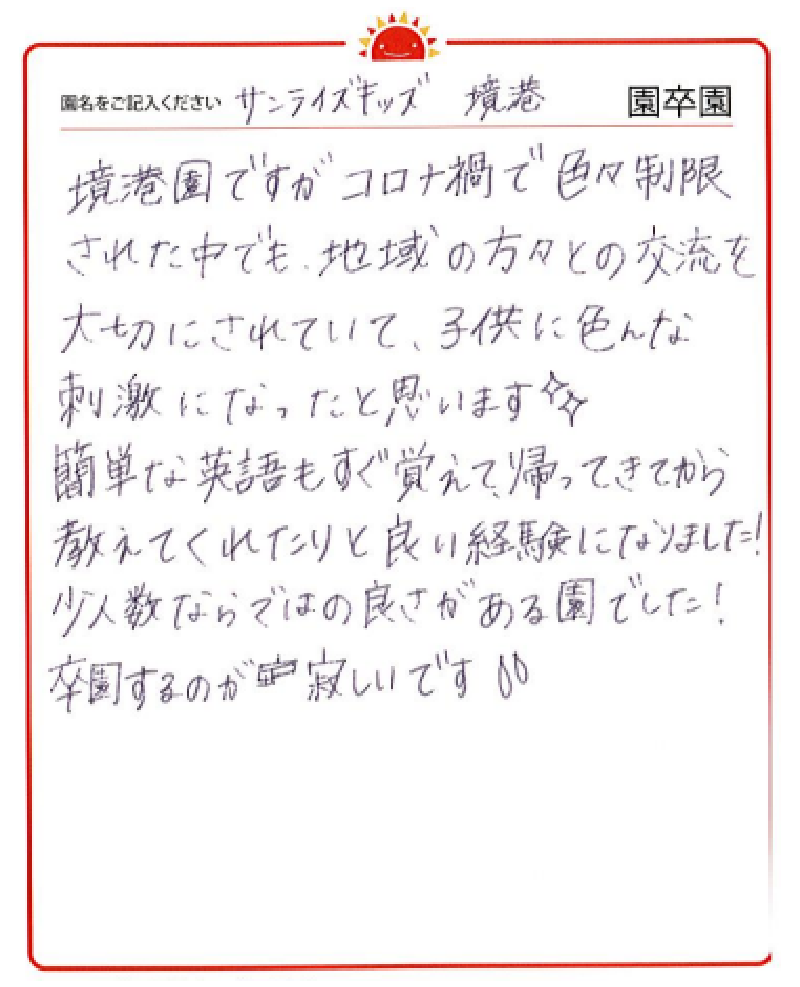 園名をご記入ください サンライズキッズ 境港 園卒園
境港園ですがコロナ禍で色々制限
された中でも、地域の方々との交流を
大切にされていて、子供に色んな
刺激になったと思います
簡単な英語もすぐ覚えて、帰ってきてから
教えてくれたりと良い経験になりました!
少人数ならではの良さがある園でした!
卒園するのが寂しいです